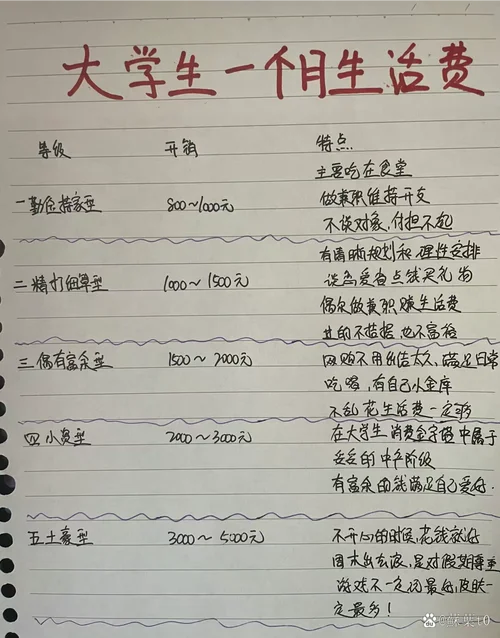 大学生一个月生活费
等级 开销 特点
主要吃在食堂
一勤俭持家型 800~1000元 做兼职维持开支
不谈对象,付担不起
有清晰规划和理性安排
二精打细算型 1000~1500元 谈恋爱省点钱买礼物
偶尔做兼职赚生活费
过的不拮据,也不富裕
三偶有富余型 1500~2000元 网购不用纠结太久,满足日常
吃喝,有自己小金库
不乱花生活费一定够
四小资型 2000~3000元 在大学生消费金字塔中属于
妥妥的中产阶级
有富余的钱满足自己爱好.
五土豪型 3000~5000元 不开心的时候,花钱就好
周末出去浪,是对假期尊重
游戏不一定玩最好,皮肤一
定最多!